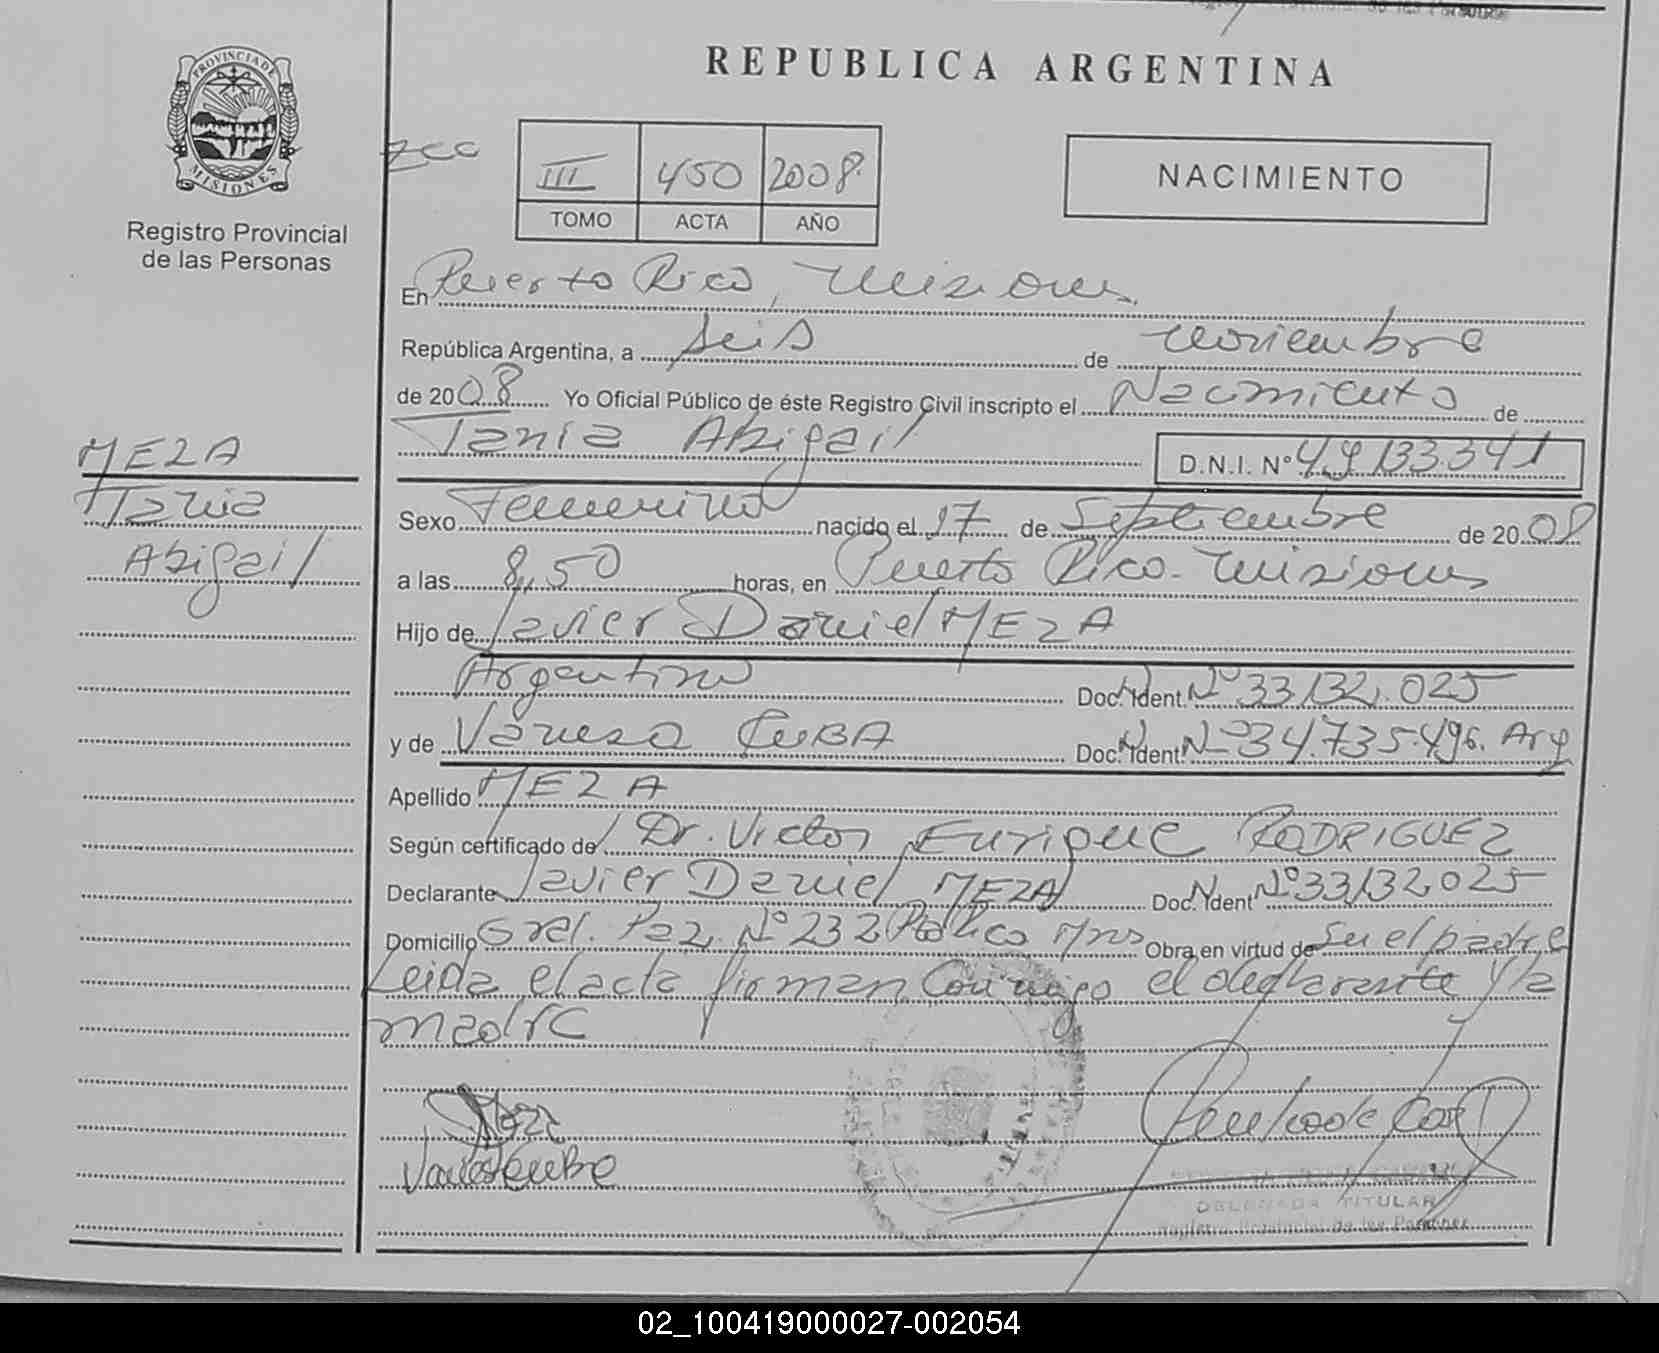 REPUBLICA ARGENTINA
PROVINCIA DE
MISIONES
Registro Provincial
de las Personas
III 450 2008
TOMO ACTA AÑO
NACIMIENTO
En Puerto Rico, Misiones
República Argentina, a seis de noviembre
de 2008 Yo Oficial Público de éste Registro Civil inscripto el Nacimiento de
Tania Abigail D.N.I. Nº 49.133.341
MEZA
Tania
Abigail
Sexo Femenino nacido el 17 de Septiembre de 2008
a las 8,50 horas, en Puerto Rico - Misiones
Hijo de Javier Daniel MEZA
Argentino Doc. Ident. Nº 33.132.025
y de Vanesa CUBA Doc. Ident. Nº 34.735.496. Arg
Apellido MEZA
Según certificado de Dr. Victor Enrique RODRIGUEZ
Declarante Javier Daniel MEZA Doc. Ident Nº 33.132.025
Domicilio Gral. Paz Nº 232 Pto Rico Mns Obra en virtud de Su el padre
Leida el acta firman Conmigo el declarante y la
madre
DELEGADA TITULAR
Registro Provincial de las Personas
02_100419000027-002054